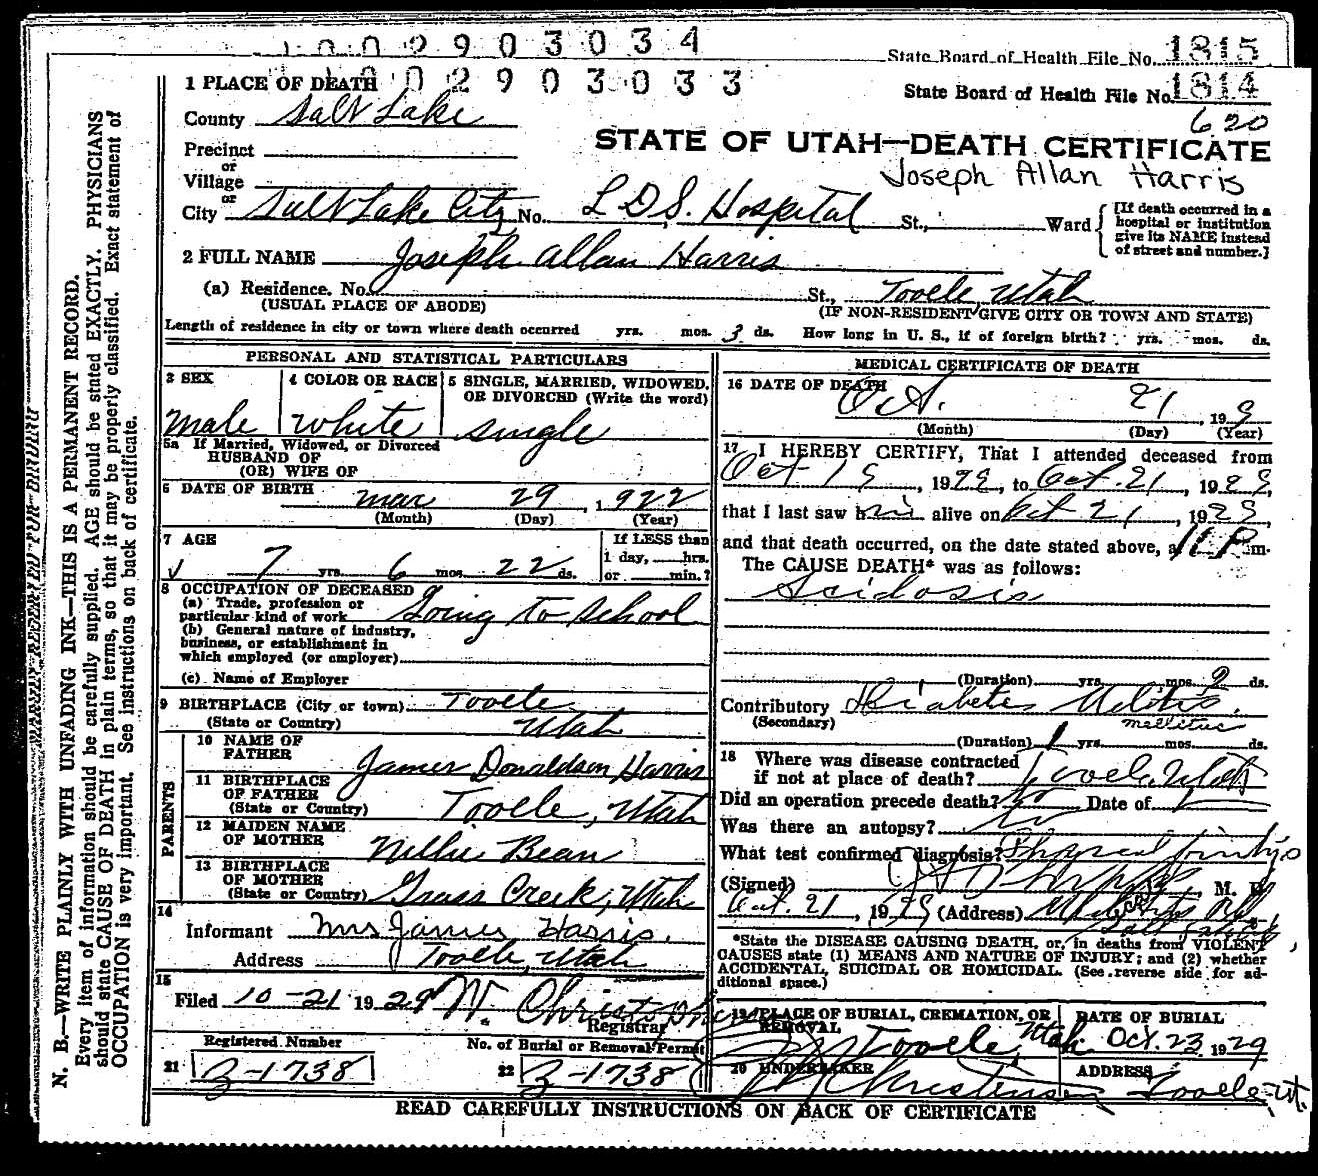 1002903034
State Board of Health File No. 1815
1 PLACE OF DEATH 1002903033
State Board of Health File No. 1814
County Salt Lake
620
STATE OF UTAH—DEATH CERTIFICATE
Precinct
or
Joseph Allan Harris
Village
or
City Salt Lake City No. L.D.S. Hospital St., Ward
[If death occurred in a
hospital or institution
give its NAME instead
of street and number.]
2 FULL NAME Joseph Allan Harris
(a) Residence. No. St., Tooele, Utah
(USUAL PLACE OF ABODE) (IF NON-RESIDENT GIVE CITY OR TOWN AND STATE)
Length of residence in city or town where death occurred yrs. mos. 3 ds. How long in U. S., if of foreign birth? yrs. mos. ds.
PERSONAL AND STATISTICAL PARTICULARS
3 SEX 4 COLOR OR RACE 5 SINGLE, MARRIED, WIDOWED,
OR DIVORCED (Write the word)
male white single
5a If Married, Widowed, or Divorced
HUSBAND OF
(OR) WIFE OF
6 DATE OF BIRTH mar 29, 1922
(Month) (Day) (Year)
7 AGE If LESS than
1 day, hrs.
7 yrs. 6 mos. 22 ds. or min.?
8 OCCUPATION OF DECEASED
(a) Trade, profession or
particular kind of work Going to School
(b) General nature of industry,
business, or establishment in
which employed (or employer)
(c) Name of Employer
9 BIRTHPLACE (City or town) Tooele
(State or Country) Utah
PARENTS
10 NAME OF
FATHER James Donaldson Harris
11 BIRTHPLACE
OF FATHER
(State or Country) Tooele, Utah
12 MAIDEN NAME
OF MOTHER Nillie Bean
13 BIRTHPLACE
OF MOTHER
(State or Country) Grass Creek, Utah
14
Informant Mrs James Harris.
Address Tooele, Utah
15
Filed 10-21 1929 W. Christopherson
Registrar
Registered Number No. of Burial or Removal Permit
21 Z-1738 22 Z-1738
MEDICAL CERTIFICATE OF DEATH
16 DATE OF DEATH
Oct. 21, 199
(Month) (Day) (Year)
17 I HEREBY CERTIFY, That I attended deceased from
Oct 19, 1929, to Oct. 21, 1929,
that I last saw him alive on Oct 21, 1929,
and that death occurred, on the date stated above, at 11 P m.
The CAUSE DEATH* was as follows:
Acidosis
(Duration) yrs. mos. 2 ds.
Contributory Diabetes Melitis.
(Secondary) mellitus
(Duration) 1 yrs. mos. ds.
18 Where was disease contracted
if not at place of death? Tooele, Utah
Did an operation precede death? no Date of
Was there an autopsy? no
What test confirmed diagnosis? Physical findings
(Signed) M. D.
Oct. 21, 1929 (Address)
Salt Lake City
*State the DISEASE CAUSING DEATH, or, in deaths from VIOLENT
CAUSES state (1) MEANS AND NATURE OF INJURY; and (2) whether
ACCIDENTAL, SUICIDAL OR HOMICIDAL. (See reverse side for ad-
ditional space.)
19 PLACE OF BURIAL, CREMATION, OR
REMOVAL
Tooele, Utah
DATE OF BURIAL
Oct. 23 1929
20 UNDERTAKER
Christensen
ADDRESS
Tooele Ut.
READ CAREFULLY INSTRUCTIONS ON BACK OF CERTIFICATE
N. B.—WRITE PLAINLY WITH UNFADING INK—THIS IS A PERMANENT RECORD.
Every item of information should be carefully supplied. AGE should be stated EXACTLY. PHYSICIANS
should state CAUSE OF DEATH in plain terms, so that it may be properly classified. Exact statement of
OCCUPATION is very important. See instructions on back of certificate.